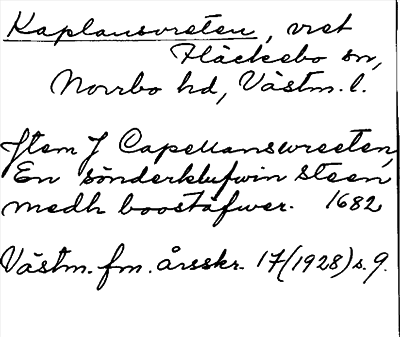 Kaplansvreten, vret
Fläckebo sn,
Norrbo hd, Västm. l.
Jtem J Capellanswreeten,
En sönderklufwin steen
medh boostäfwer. 1682
Västm. fm. årsskr. 17(1928)s.9.